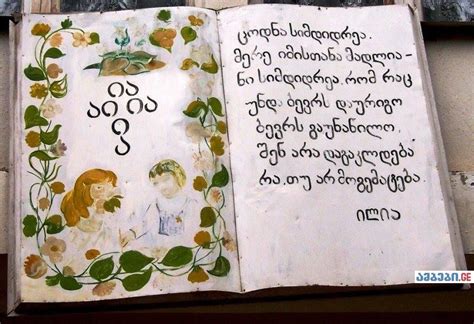 ია
აი ია
ცოდნა სიმდიდრეა.
მერე იმისთანა მადლია-
ნი სიმდიდრეა, რომ რაც
უნდა ბევრს დაურიგო
ბევრს გაუნაწილო.
შენ არა დაგაკლდება
რა, თუ არ მოგემატება.
ილია
ამბები.GE